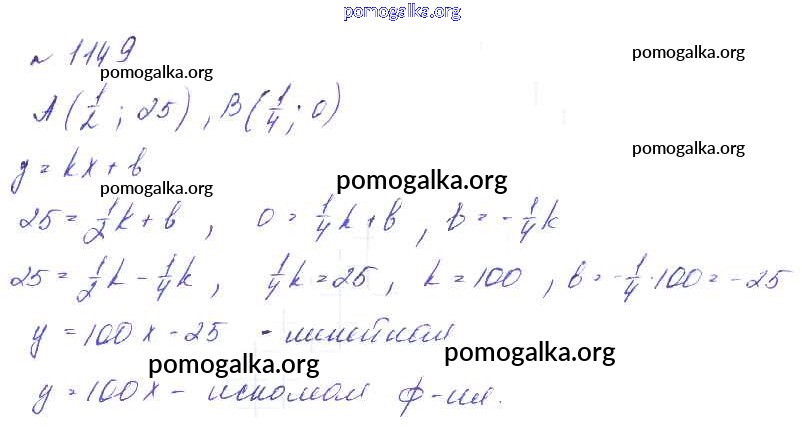 pomogalka.org
№ 1149
pomogalka.org pomogalka.org
A(1/2; 25), B(1/4; 0)
pomogalka.org
y = kx + b
pomogalka.org pomogalka.org
25 = 1/2k + b, 0 = 1/4k + b, b = -1/4k
25 = 1/2k - 1/4k, 1/4k = 25, k = 100, b = -1/4·100 = -25
y = 100x - 25 - линейная
pomogalka.org pomogalka.org
y = 100x - искомая ф-ия.